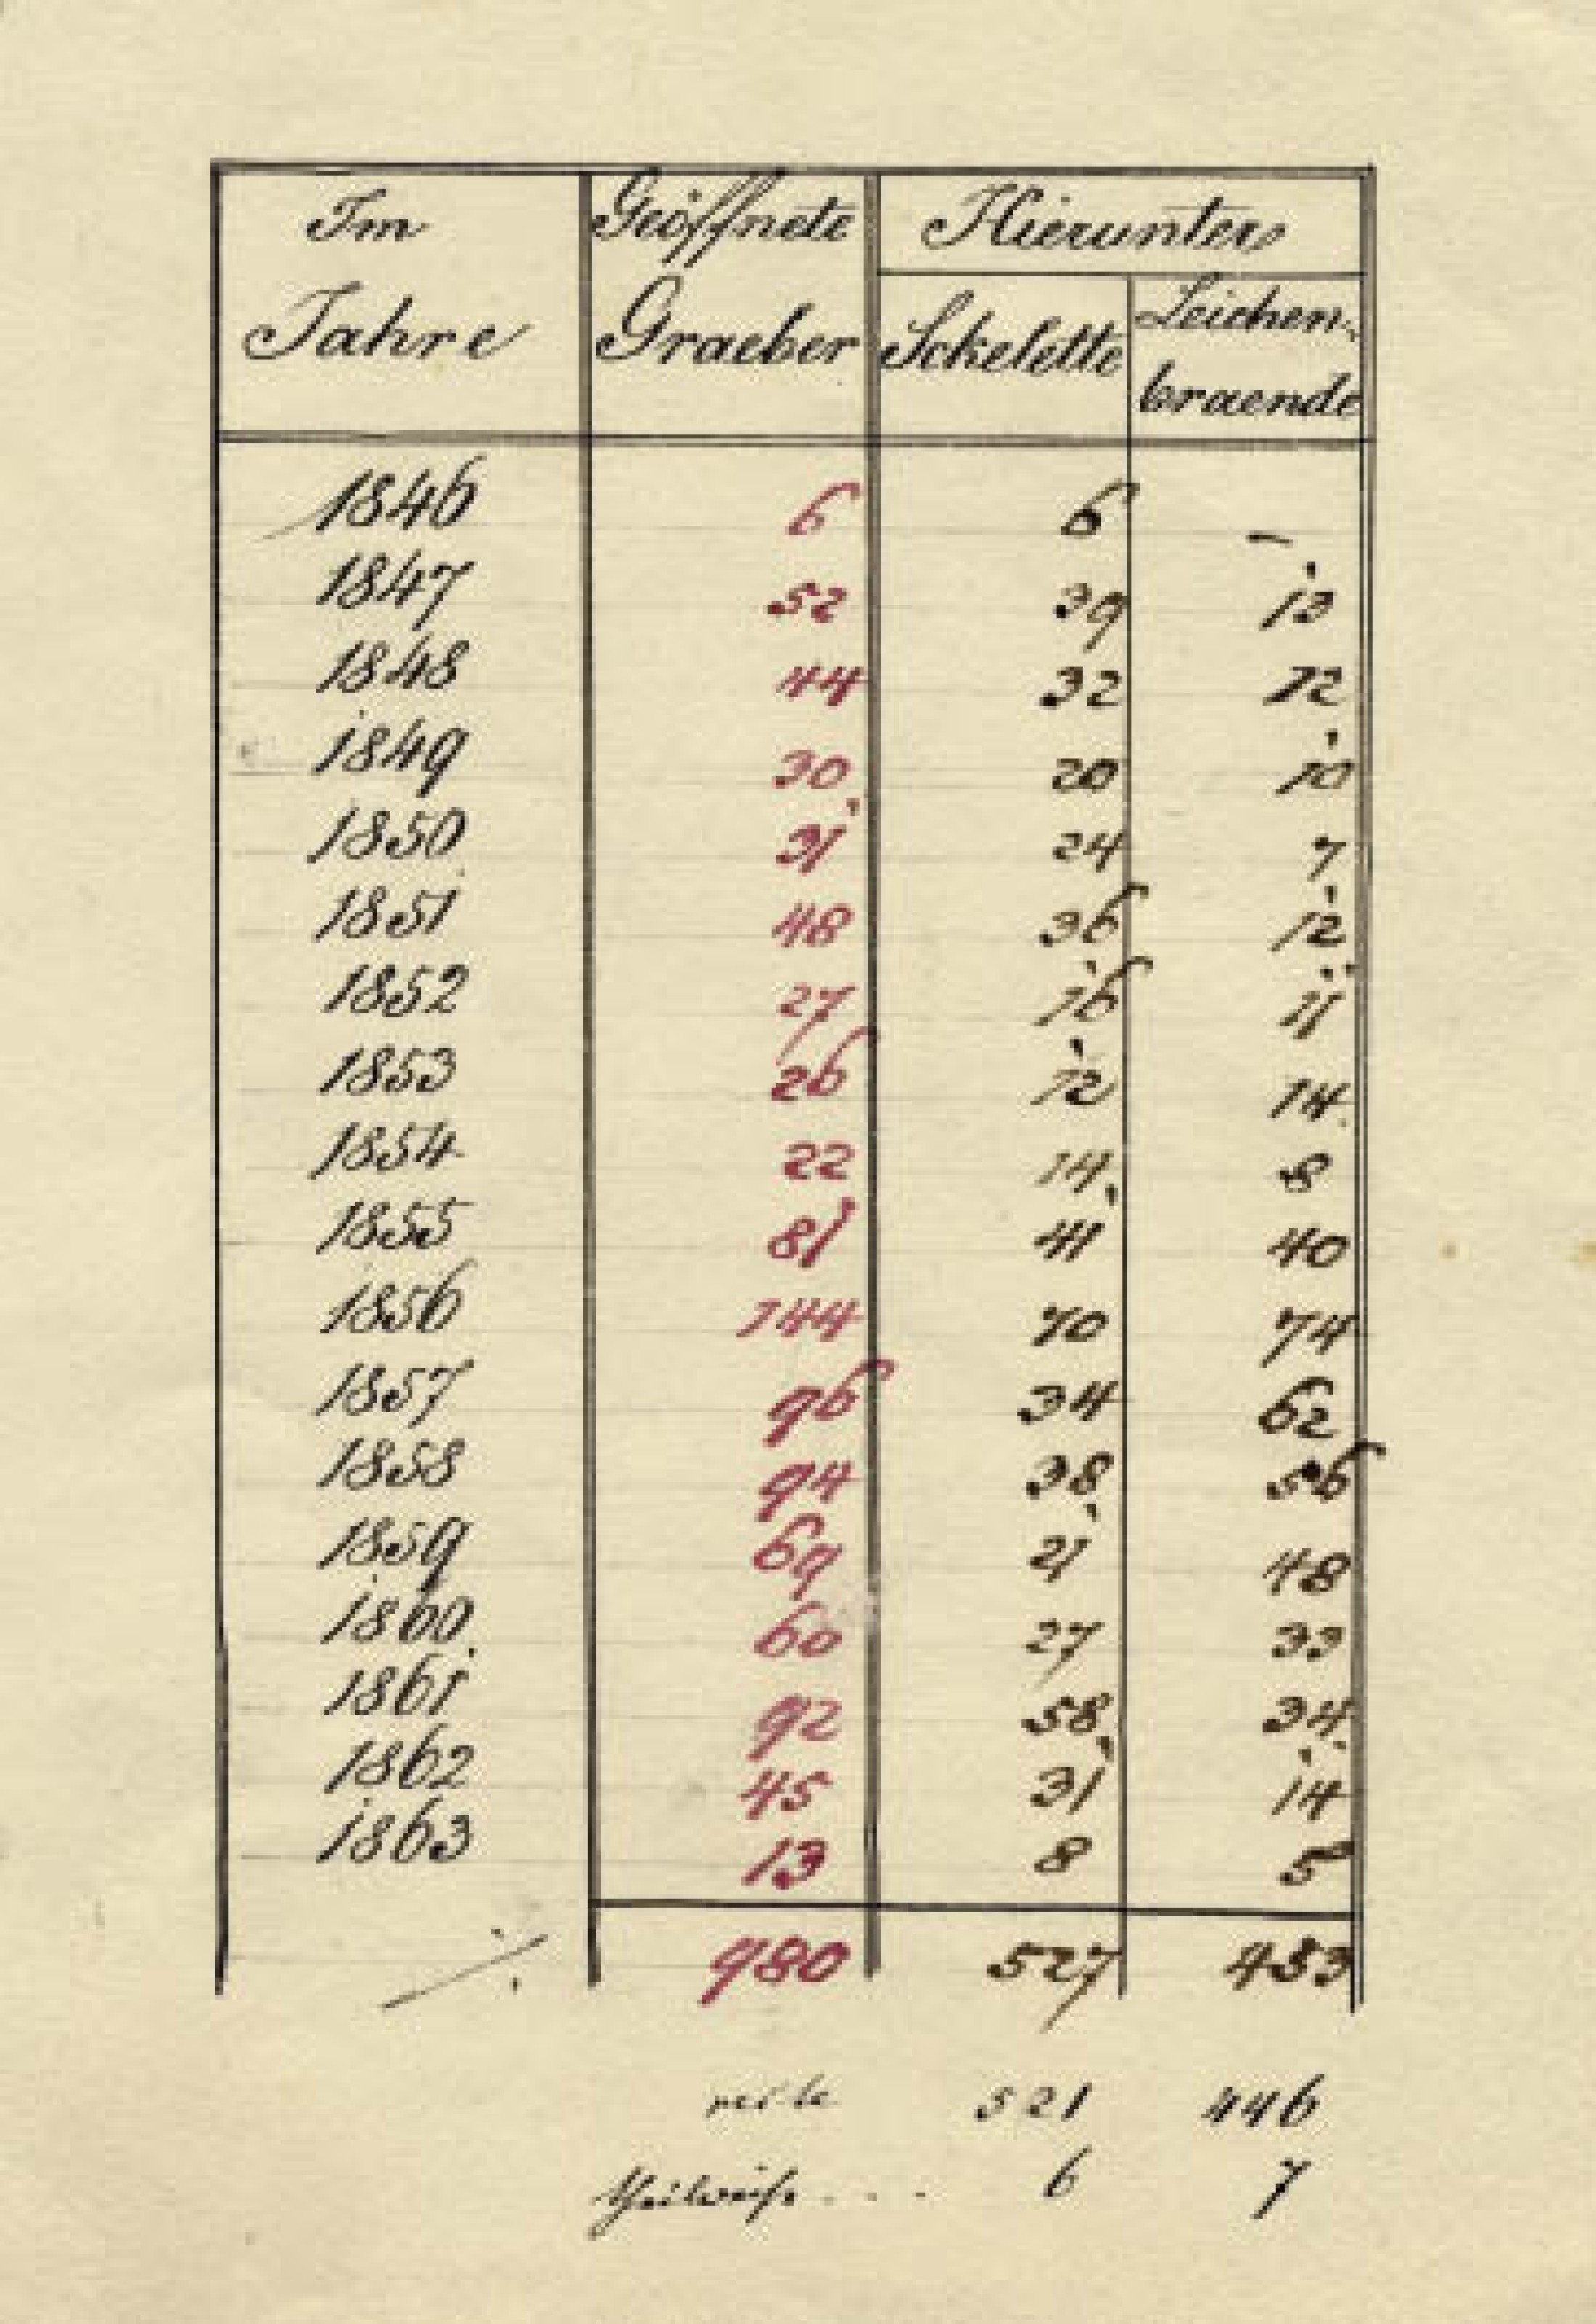 Im Geöffnete Hierunter
Jahre Graeber Sckelette Leichen-
braende
1846 6 6 –
1847 52 39 13
1848 44 32 12
1849 30 20 10
1850 31 24 7
1851 48 36 12
1852 27 16 11
1853 26 12 14
1854 22 14 8
1855 81 41 40
1856 144 70 74
1857 96 34 62
1858 94 38 56
1859 69 21 48
1860 60 27 33
1861 92 58 34
1862 45 31 14
1863 13 8 5
980 527 453
521 446
theilweise . . . 6 7